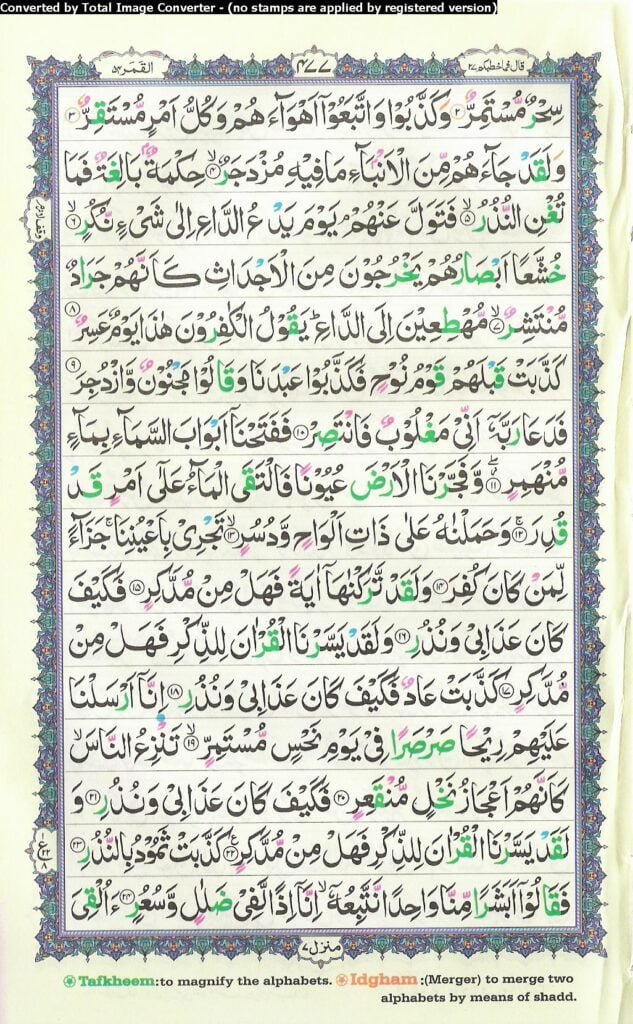 Converted by Total Image Converter - (no stamps are applied by registered version)
القمر ٥٤
٤٧٧
قال فما خطبكم ٢٧
سِحْرٌ مُّسْتَمِرٌّ ۝۲ وَكَذَّبُوْا وَاتَّبَعُوْٓا اَهْوَآءَهُمْ وَكُلُّ اَمْرٍ مُّسْتَقِرٌّ ۝۳
وَلَقَدْ جَآءَهُمْ مِّنَ الْاَنْۢبَآءِ مَا فِيْهِ مُزْدَجَرٌ ۝۴ۙ حِكْمَةٌۢ بَالِغَةٌ فَمَا
تُغْنِ النُّذُرُ ۝۵ۙ فَتَوَلَّ عَنْهُمْ ۘ يَوْمَ يَدْعُ الدَّاعِ اِلٰى شَيْءٍ نُّكُرٍ ۝۶ۙ
خُشَّعًا اَبْصَارُهُمْ يَخْرُجُوْنَ مِنَ الْاَجْدَاثِ كَاَنَّهُمْ جَرَادٌ
مُّنْتَشِرٌ ۝۷ۙ مُّهْطِعِيْنَ اِلَى الدَّاعِ ؕ يَقُوْلُ الْكٰفِرُوْنَ هٰذَا يَوْمٌ عَسِرٌ ۝۸
كَذَّبَتْ قَبْلَهُمْ قَوْمُ نُوْحٍ فَكَذَّبُوْا عَبْدَنَا وَقَالُوْا مَجْنُوْنٌ وَّازْدُجِرَ ۝۹
فَدَعَا رَبَّهٗٓ اَنِّيْ مَغْلُوْبٌ فَانْتَصِرْ ۝۱۰ فَفَتَحْنَآ اَبْوَابَ السَّمَآءِ بِمَآءٍ
مُّنْهَمِرٍ ۝۱۱ۖ وَّفَجَّرْنَا الْاَرْضَ عُيُوْنًا فَالْتَقَى الْمَآءُ عَلٰٓى اَمْرٍ قَدْ
قُدِرَ ۝۱۲ۚ وَحَمَلْنٰهُ عَلٰى ذَاتِ اَلْوَاحٍ وَّدُسُرٍ ۝۱۳ۙ تَجْرِيْ بِاَعْيُنِنَا ۚ جَزَآءً
لِّمَنْ كَانَ كُفِرَ ۝۱۴ وَلَقَدْ تَّرَكْنٰهَآ اٰيَةً فَهَلْ مِنْ مُّدَّكِرٍ ۝۱۵ فَكَيْفَ
كَانَ عَذَابِيْ وَنُذُرِ ۝۱۶ وَلَقَدْ يَسَّرْنَا الْقُرْاٰنَ لِلذِّكْرِ فَهَلْ مِنْ
مُّدَّكِرٍ ۝۱۷ كَذَّبَتْ عَادٌ فَكَيْفَ كَانَ عَذَابِيْ وَنُذُرِ ۝۱۸ اِنَّآ اَرْسَلْنَا
عَلَيْهِمْ رِيْحًا صَرْصَرًا فِيْ يَوْمِ نَحْسٍ مُّسْتَمِرٍّ ۝۱۹ۙ تَنْزِعُ النَّاسَ ۙ
كَاَنَّهُمْ اَعْجَازُ نَخْلٍ مُّنْقَعِرٍ ۝۲۰ فَكَيْفَ كَانَ عَذَابِيْ وَنُذُرِ ۝۲۱ وَ
لَقَدْ يَسَّرْنَا الْقُرْاٰنَ لِلذِّكْرِ فَهَلْ مِنْ مُّدَّكِرٍ ۝۲۲ كَذَّبَتْ ثَمُوْدُ بِالنُّذُرِ ۝۲۳
فَقَالُوْٓا اَبَشَرًا مِّنَّا وَاحِدًا نَّتَّبِعُهٗٓ ۙ اِنَّآ اِذًا لَّفِيْ ضَلٰلٍ وَّسُعُرٍ ۝۲۴ ءَاُلْقِيَ
منزل ٧
Tafkheem:to magnify the alphabets. Idgham :(Merger) to merge two
alphabets by means of shadd.